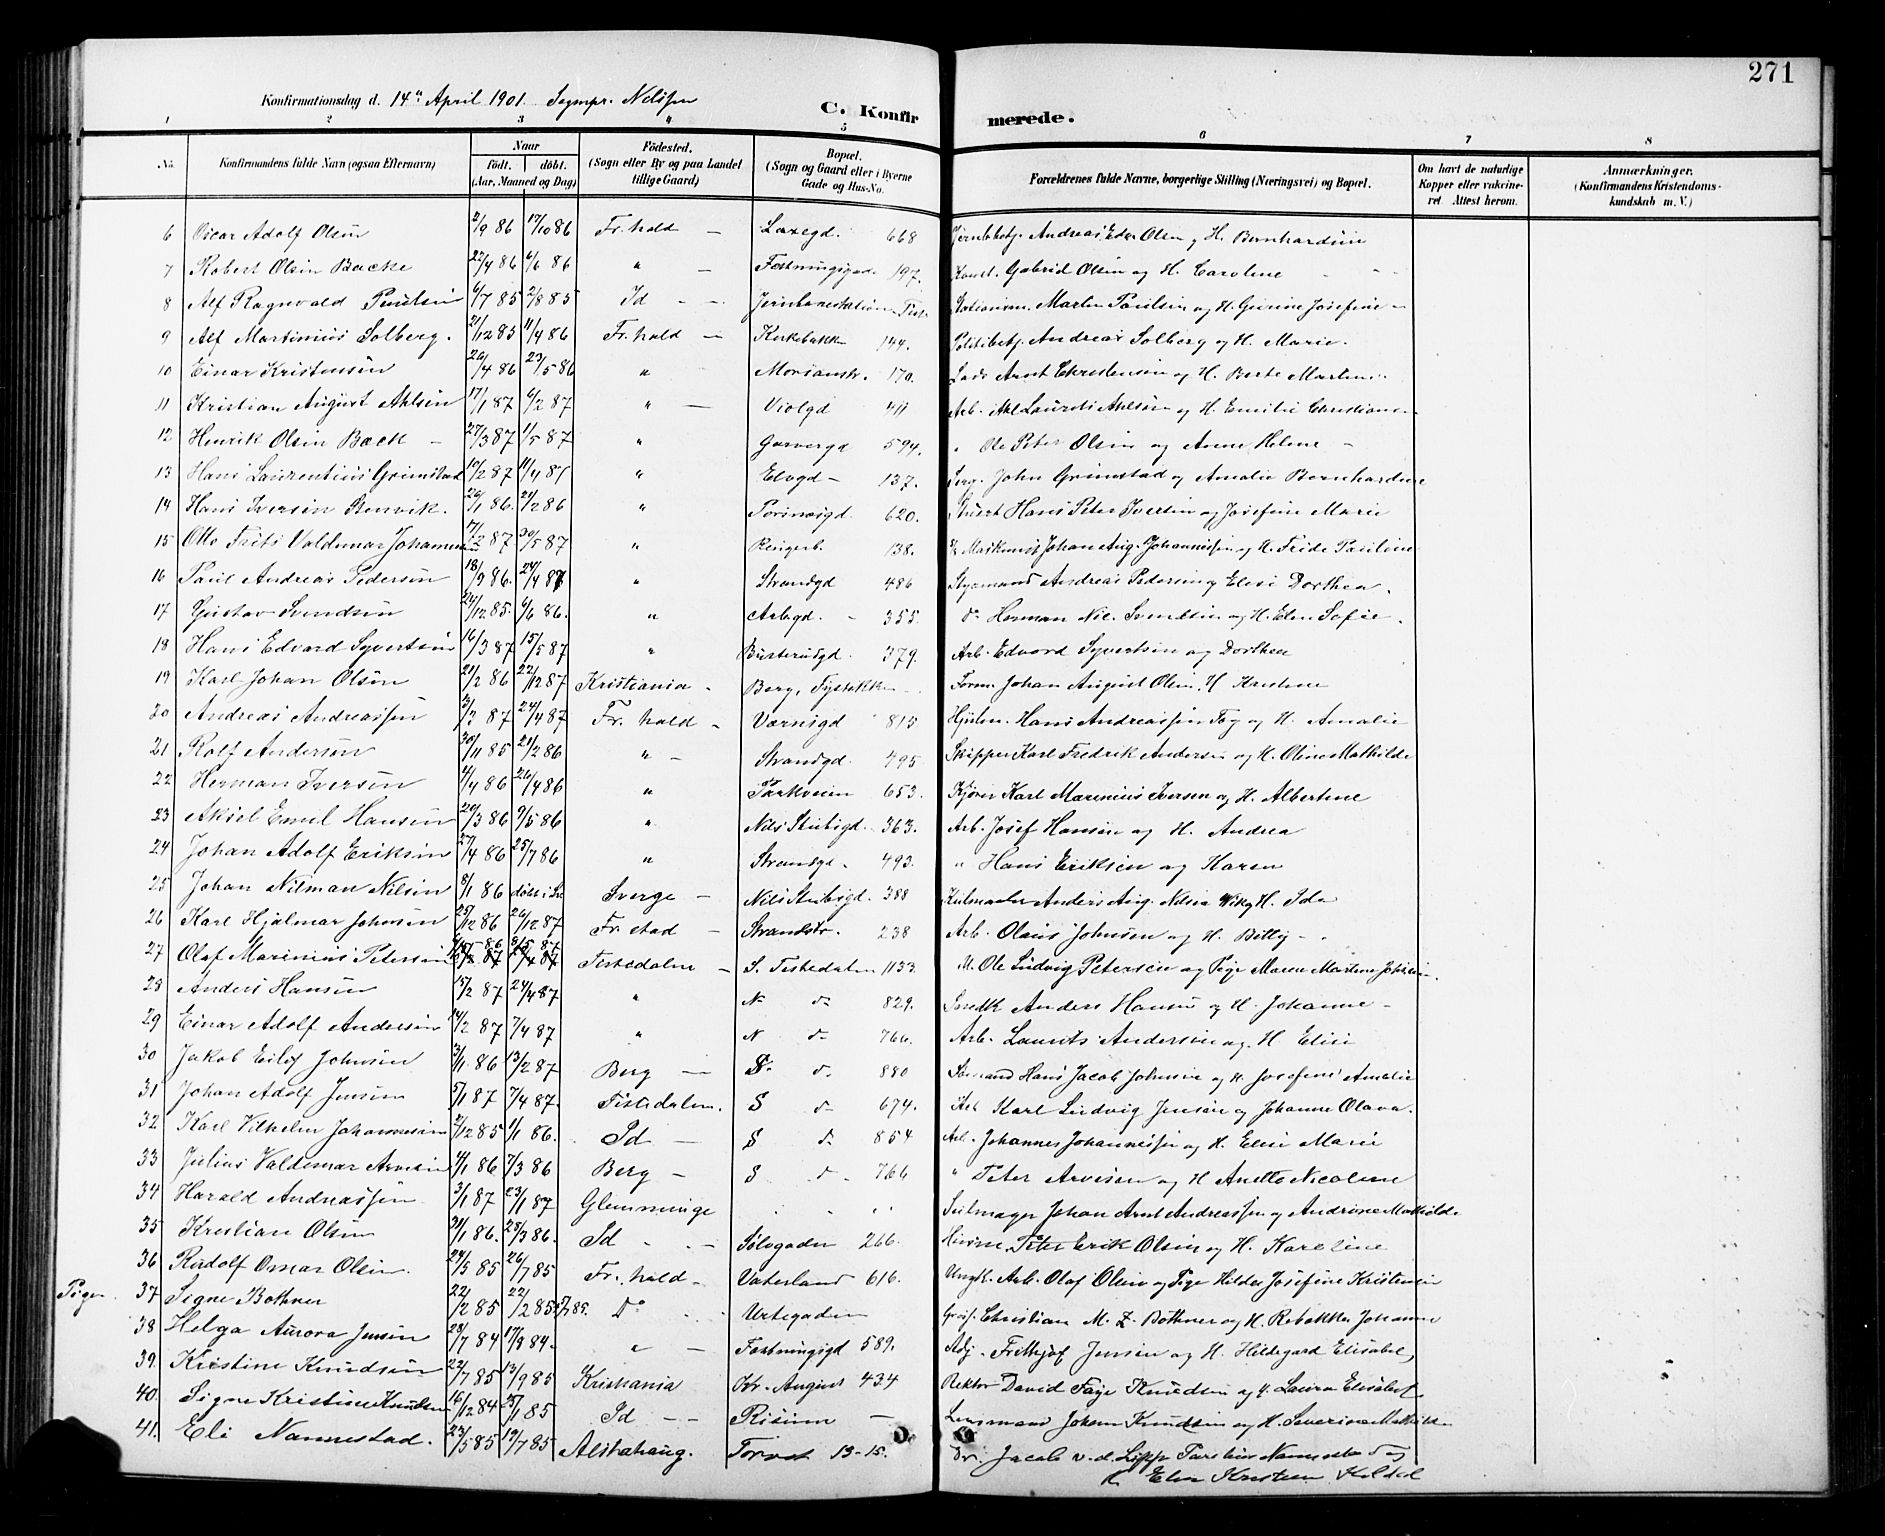 271
Konfirmationsdag d. 14de April 1901. Sognepr. Nilssen
C. Konfirmerede.
1 2 3 4 5 6 7 8
No. Konfirmandens fulde Navn (ogsaa Efternavn) Naar født. døbt. (Aar, Maaned og Dag) Fødested. (Sogn eller By og paa Landet tillige Gaard) Bopæl. (Sogn og Gaard eller i Byerne Gade og Hus-No. Forældrenes fulde Navne, borgerlige Stilling (Næringsvei) og Bopæl. Om havt de naturlige Kopper eller vakcineret. Attest herom. Anmærkninger. (Konfirmandens Kristendomskundskab m. V.)
6 Oscar Adolf Olsen 2/9 86 17/10 86 Fr.hald — Laxegd. 668 Andreas Edv. Olsen og H. Bernhardine
7 Robert Olsen Backe 22/4 86 6/6 86 " — Fæstningsgad. 197. Gabriel Olsen og H. Caroline
8 Alf Ragnvald Paulsen 6/7 85 2/8 85 Id — Jernbanestationen Martin Paulsen og H. Gunine Josefine
9 Alf Martinius Solberg. 21/12 85 11/4 86 Fr.hald — Kirkebakk 144. Politibetj. Andreas Solberg og H. Marie.
10 Einar Kristensen 20/4 86 23/5 86 " Morianstr. 170. Lods Arnt Christensen og H. Berte Martine
11 Kristian August Ahlsen 17/1 87 6/2 87 " — Violgd 411 Arb. Laurits Ahlsen og H. Emilie Christiane
12 Henrik Olsen Back — 27/3 87 11/5 87 " Garvergd 594. " Ole Peter Olsen og Anne Helene —
13 Hans Laurentius Grimstad 10/2 87 11/4 87 " Elvgd — 137. Serg. John Grimstad og Amalie Bernhardine
14 Hans Iversen Stenvik. 26/1 86. 21/2 86 " Torsnæsgd. 620. Hans Peter Iversen og Josefine Marie
15 Otto Frits Valdemar Johannessen 17/2 87. 30/5 87 " Ringerb. 138. Maskinist Johan Aug. Johannessen og H. Fride Pauline
16 Paul Andreas Pedersen 18/9 86. 24/4 87 " Strandgd 486 Styrmand Andreas Pedersen og Elise Dorthea.
17 Gustav Svendsen 24/12 85 6/6 86. " Arbgd. — 355. do Herman Nic. Svendsen og H. Elen Sofie.
18 Hans Edvard Syvertsen 16/3 87 15/5 87 " Busterudgd. 379. Arb. Edvard Syvertsen og Dorthea
19 Karl Johan Olsen 21/2 86 22/12 87 Kristiania. Berg, Form. Johan August Olsen, H Kristine
20 Andreas Andreassen 3/2 87 24/4 87 Fr.hald — Værnsgd 815 Hjulm. Hans Andreassen og H. Amalie
21 Rolf Andersen 30/11 85 21/2 86 " — Strandgd. 495. Skipper Karl Fredrik Andersen og H. Oline Mathilde
22 Herman Iversen 4/4 86 26/4 86 " Parkveien 653. Kjører Karl Marinius Iversen og H. Albertine
23 Aksel Emil Hansen 20/3 86 9/5 86 " Nils Stubsgd. 363. Arb. Josef Hansen og H. Andrea
24 Johan Adolf Eriksen 27/4 86 25/7 86 " Strandgd. 493. " Hans Eriksen og Karen
25 Johan Nilman Nilsen 8/1 86 døbt i Sverge — Nils Stubsgd. 388 Anders Aug. Nilsen og H. Ida
26 Karl Hjalmar Johnsen 25/12 86 26/12 87 Fr.stad — Strandstr. 238 Arb. Olaus Johnsen og H. Billy
27 Olaf Marinius Petersen Tistedalen — S. Tistedalen 1133. M. Ole Ludvig Petersen og Pige Maren Martine Johnsen.
28 Anders Hansen 15/2 87 24/4 87 " N do 829. Smedk Anders Hansen og H. Johanne —
29 Einar Adolf Andersen 14/2 87 7/4 87 " N do 766. Arb. Laurits Andersen og H. Elise
30 Jakob Eilif Johnsen 3/11 86 13/2 87 Berg — S. do 880 Sømand Hans Jacob Johnsen og H. Josefine Amalie
31 Johan Adolf Jensen 5/1 87 7/4 87. Tistedalen. S do 674. Arb Karl Ludvig Jensen og Johanne Olava.
32 Karl Vilhelm Johannessen 2/12 85 1/1 86. Id — S do 854 Arb. Johannes Johannessen og H. Elise Marie
33 Julius Valdemar Arvesen 4/1 86 7/3 86 Berg — S do 766 " Peter Arvesen og H Anette Nicoline
34 Harald Andreassen 3/1 87 23/1 87 Glemminge Seilmager Johan Arnt Andreassen og Andrine Mathilde
35 Kristian Olsen 21/1 86. 25/3 86. Id — Sølvgaden 266. Peter Erik Olsen og H. Kareline
36 Rudolf Omar Olsen. 24/5 85 26/7 85 Fr.hald — Vaterland 616. Ungk. Arb. Olaf Olsen og Pige Hilda Josefine Kristensen
Piger. 37 Signe Bothner 22/2 85 22/2 85 5/7 85. Do Urtegaden Christian M. Z. Bothner og H. Rebekka Johanne
38 Helga Aurora Jensen 28/7 84 17/9 84. " — Fæstningsgd 589. Adj. Frithjof Jensen og H. Hildegard Elisabet
39. Kristine Knudsen 22/7 85 13/9 85 Kristiania Kr. August 434 Rektor David Faye Knudsen og H. Laura Elisabet
40. Signe Kristine Knudsen 16/12 84 25/1 85 Id — Risum — Lensmand Johan Knudsen og H. Severine Mathilde
41. Eli Nannestad. 23/5 85 19/7 85 Alstahaug. Torvet 13-15. Dr. Jacob v. d. Lippe Nannestad og
H. Elen Kirstine Kildal